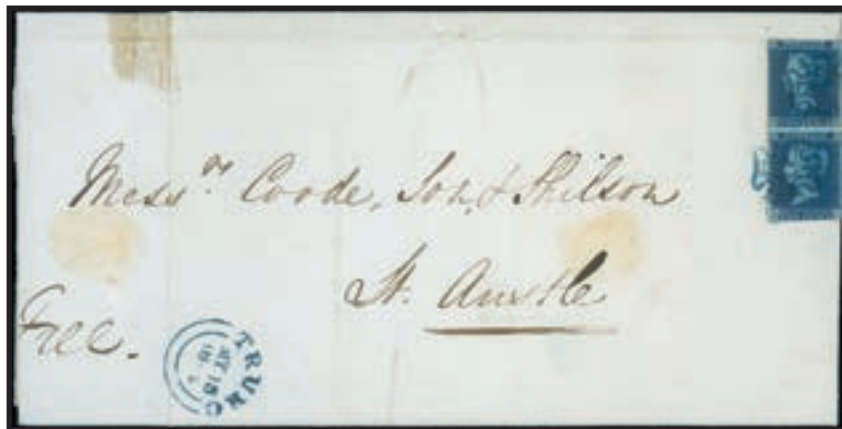 Messrs Coode, Son, & Shilson
St. Austle
Free.
TRURO